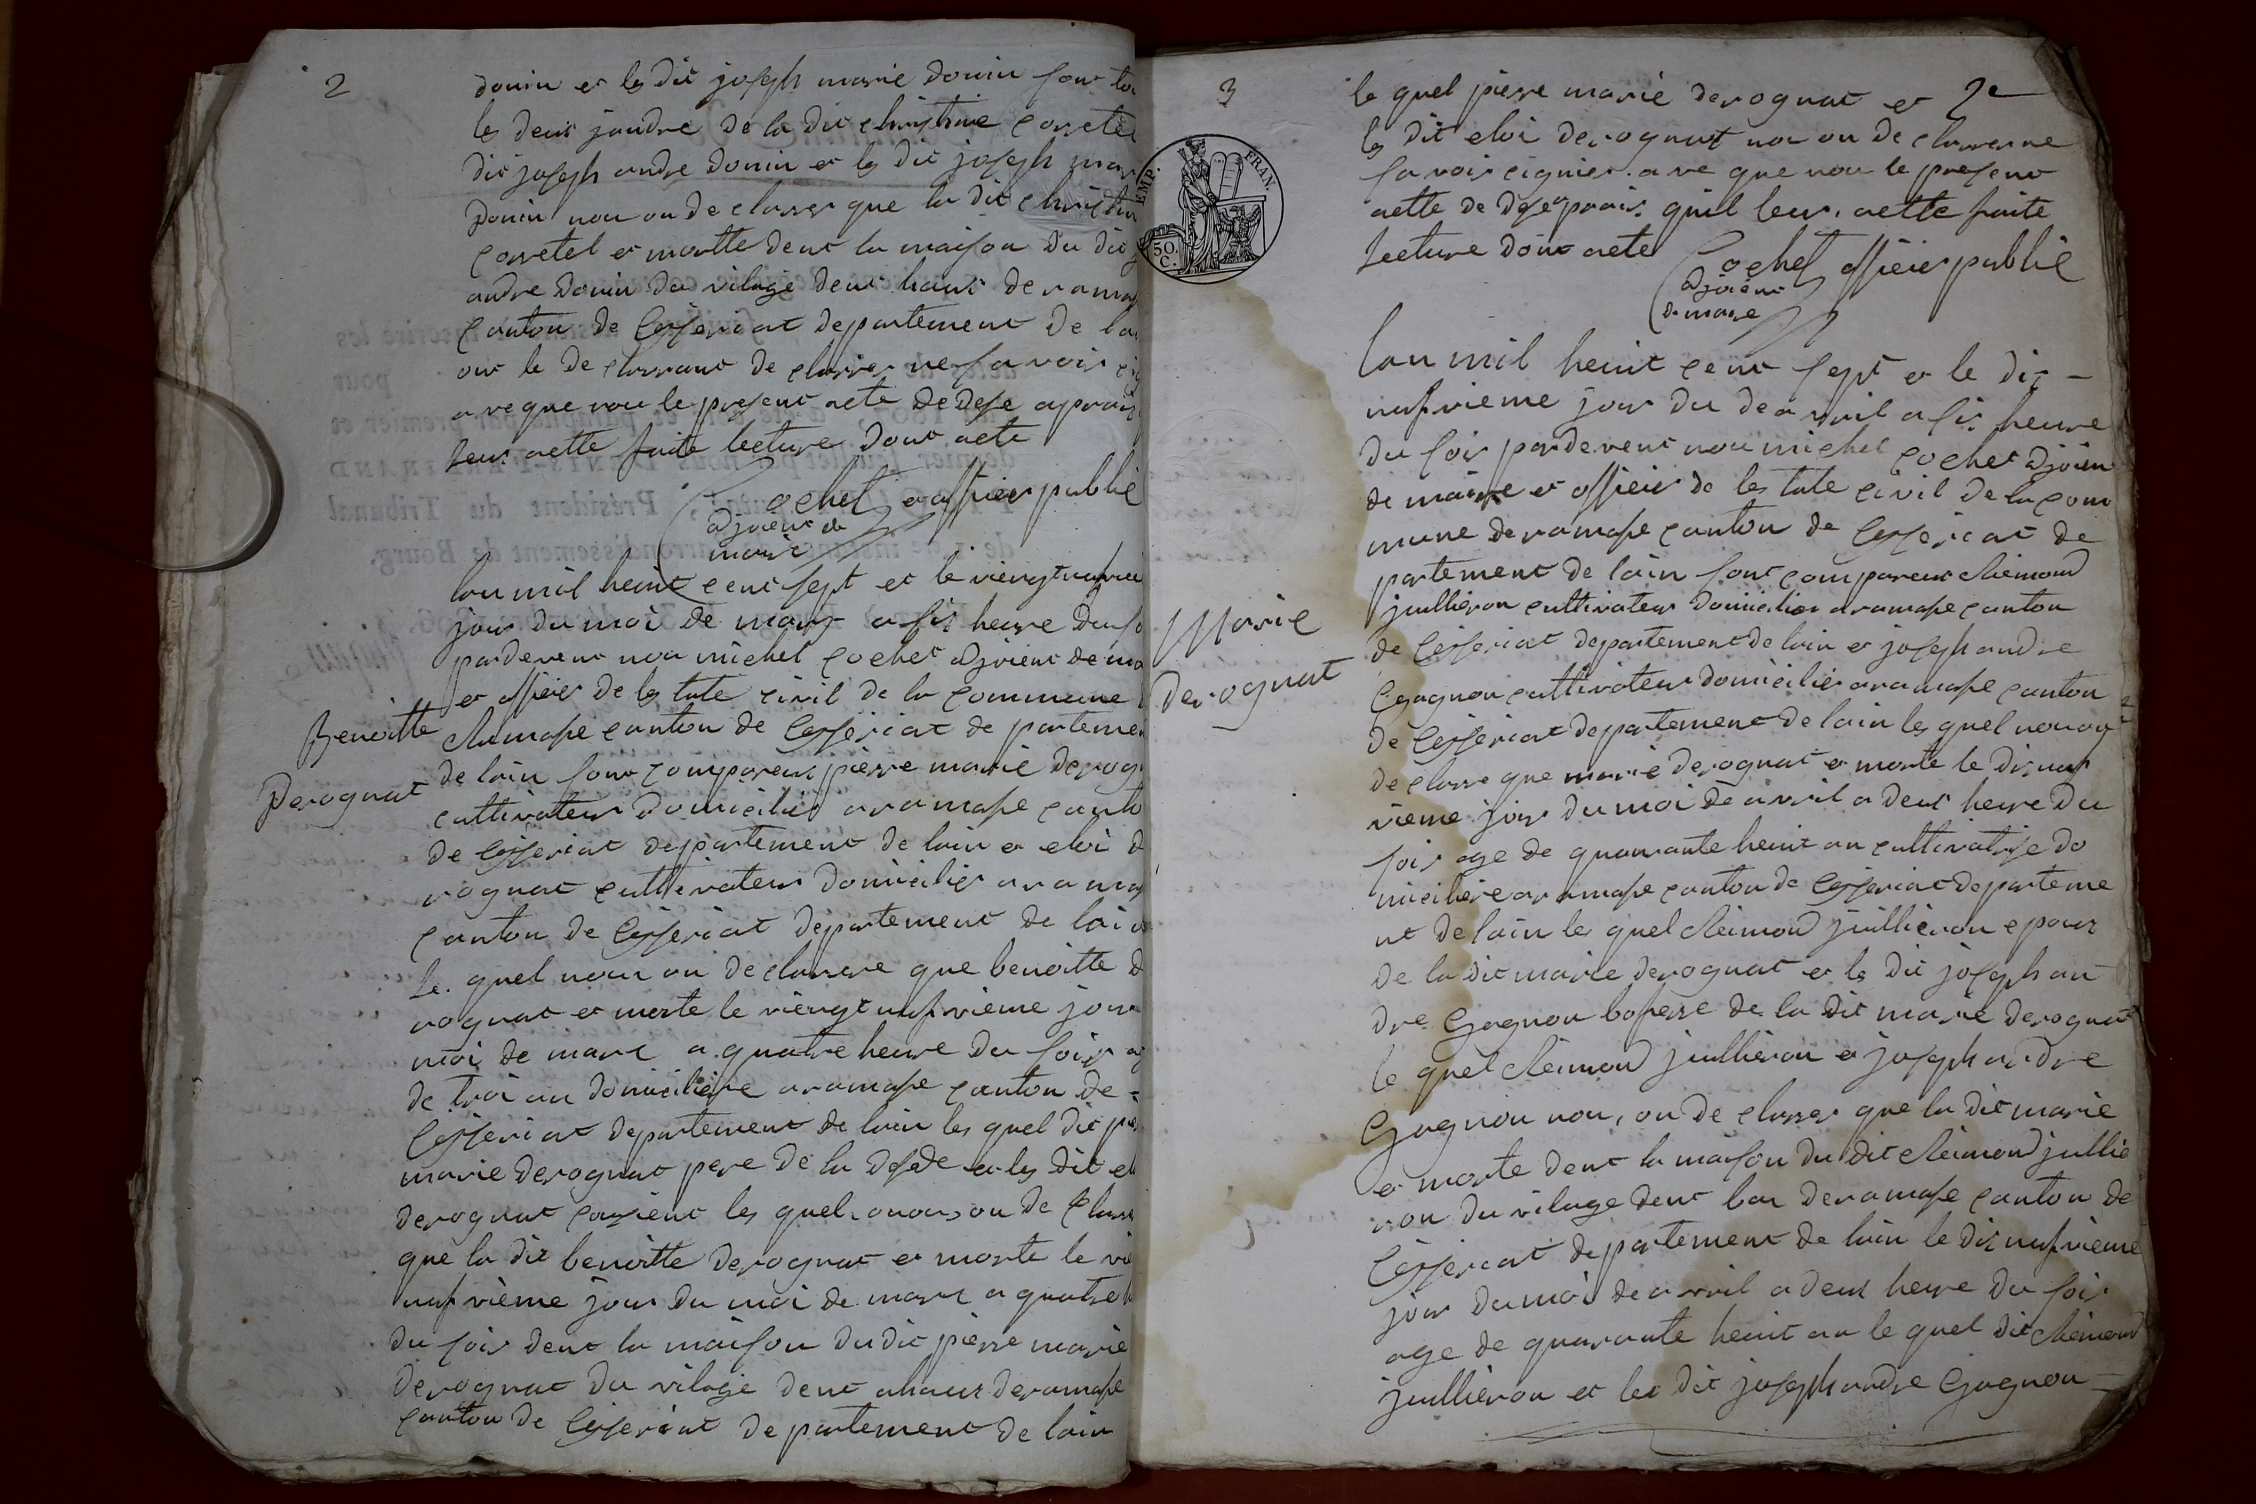 2
donin et les dit joseph marie donin son to
les deux jandre de la dit christine corretel
dit joseph andre donin et les dit joseph mar
donin nou on declarer que la dit christin
corretel et mortte dent la maison du dit
andre donin du vilage dent haut de ramas
canton de Cesseriat departement de lai
ont le declarrant declarrer ne savoir sig
aveque nou le present acte de dese aprais
leur aette faite lecture dont acte
Cochet officier public
adjoient de
marie
Benoitte
Derognat
lan mil heuit cent sept et le viengt nufvie
jour du moi de mars a sis heure du so
pardevent nou michel Cochet adjoient de ma
et officier de les tate civil de la commune
Ramasse canton de Cesseriat departemen
de lain sont comparent pierre marie derog
cultivateur domicilier a ramasse canto
de Cesseriat departement de lain et eloi de
rognat cultivateur domicilier a ramas
canton de Cesseriat departement de lain
le quel nou on declarere que benoitte de
rognat et morte le viengt nufvieme jour
moi de mars a quatre heure du soir ag
de troi an domicilier a ramasse canton de
Cesseriat departement de lain les quel dit pier
marie derognat pere de la desede et les dit el
derognat les quel nou on declarer
que la dit benoitte derognat et morte le vie
nufvieme jour du moi de mars a quatre h
du soir dent la maison du dit pierre marie
derognat du vilage dent ahaut de ramasse
canton de Cesseriat departement de lain
3
2e
EMP. FRAN.
50 C.
le quel pierre marie derognat et
les dit eloi derognat nou on declarer ne
savoir signier aveque nou le present
aette de dese aprais quil leur aette faite
lecture dont acte
Cochet officier public
adjoient
de marie
Marie
derognat
lan mil heuit cent sept et le dis
nufvieme jour du de avril a sis heure
du soir pardevent nou michel Cochet adjoien
de maire et officier de les tate civil de la com
mune de ramasse canton de Cesseriat de
partement de lain sont comparent cleimond
juillieron cultivateur domicilier a ramasse canton
de Cesseriat departement de lain et joseph andre
Gagnon cultivateur domicilier a ramasse canton
de Cesseriat departement de lain les quel nou on
declarre que marie derognat et morte le dis nuf
vieme jour du moi de avril a deus heure du
soir age de quarante heuit an cultivatrise do
miciliere a ramasse canton de Cesseriat departeme
nt de lain les quel cleimond juillieron epous
de la dit marie derognat et les dit joseph an
dre Gagnon bopere de la dit marie derognat
le quel cleimond juillieron et joseph andre
Gagnon nou, on declarer que la dit marie
et morte dent la maison du dit cleimond juillie
ron du vilage dent bas de ramasse canton de
Cesseriat departement de lain le dis nufvieme
jour du moi de avril a deus heure du soir
age de quarante heuit an le quel dit cleimond
juillieron et les dit joseph andre Gagnon